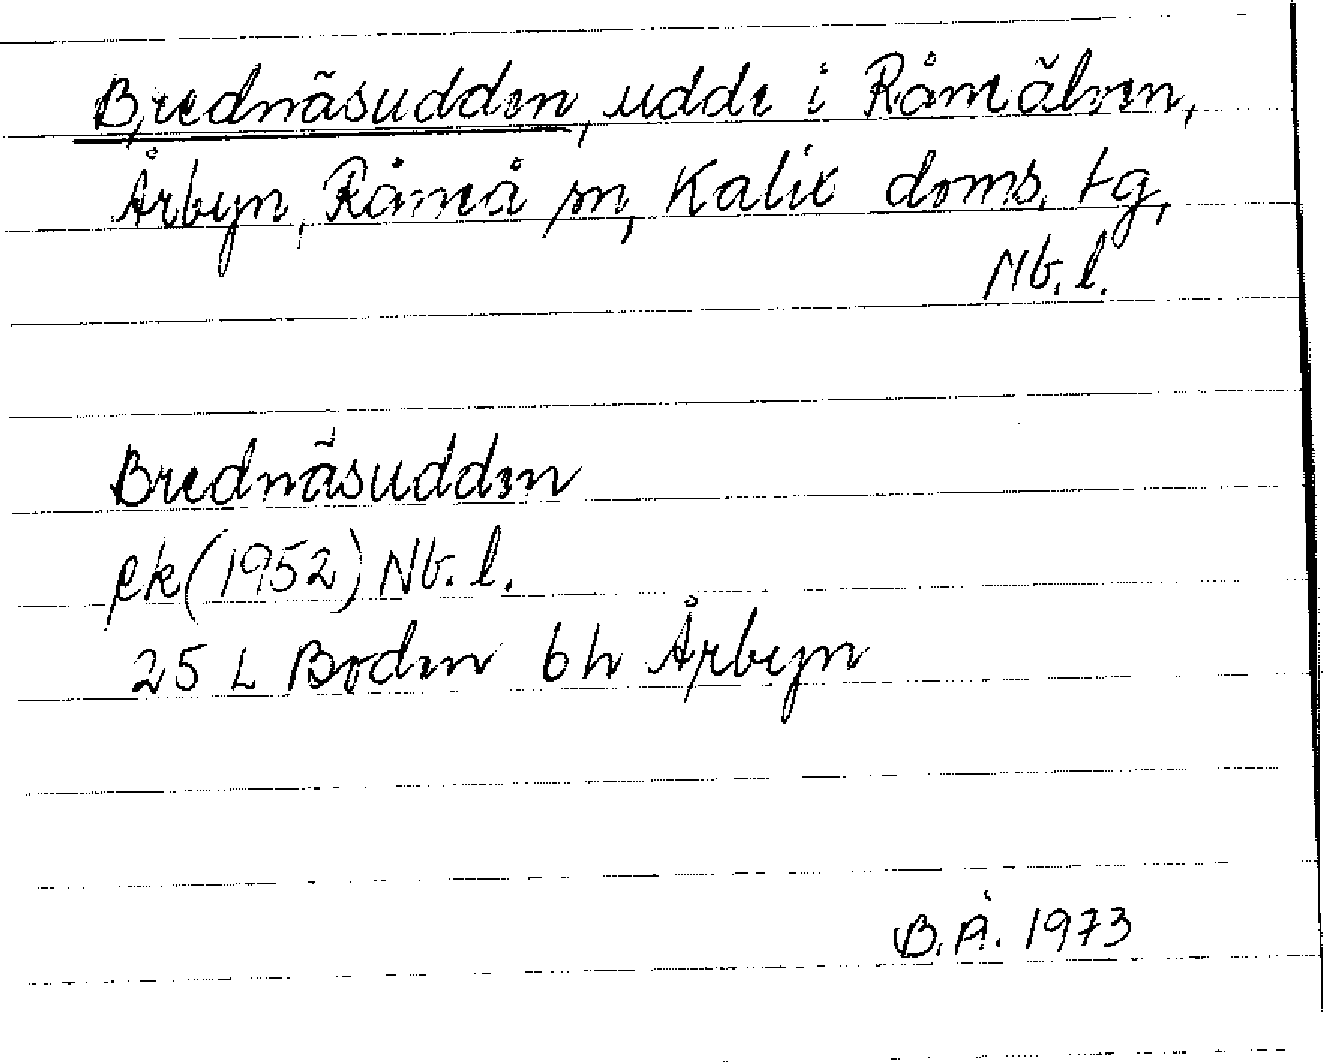 Brednäsudden, udde i Råneälven,
Årbyn, Råneå sn, Kalix doms. tg,
Nb. l.
Brednäsudden
ek (1952) Nb. l.
25 L Boden 6h Årbyn
B. Å. 1973